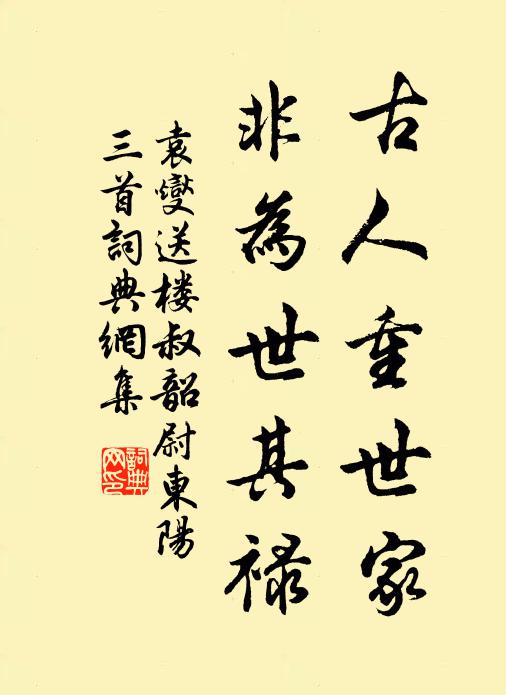 古人重世家
非為世其祿
袁燮送楼叔韶尉東陽
三首詞典網集
詞典网印